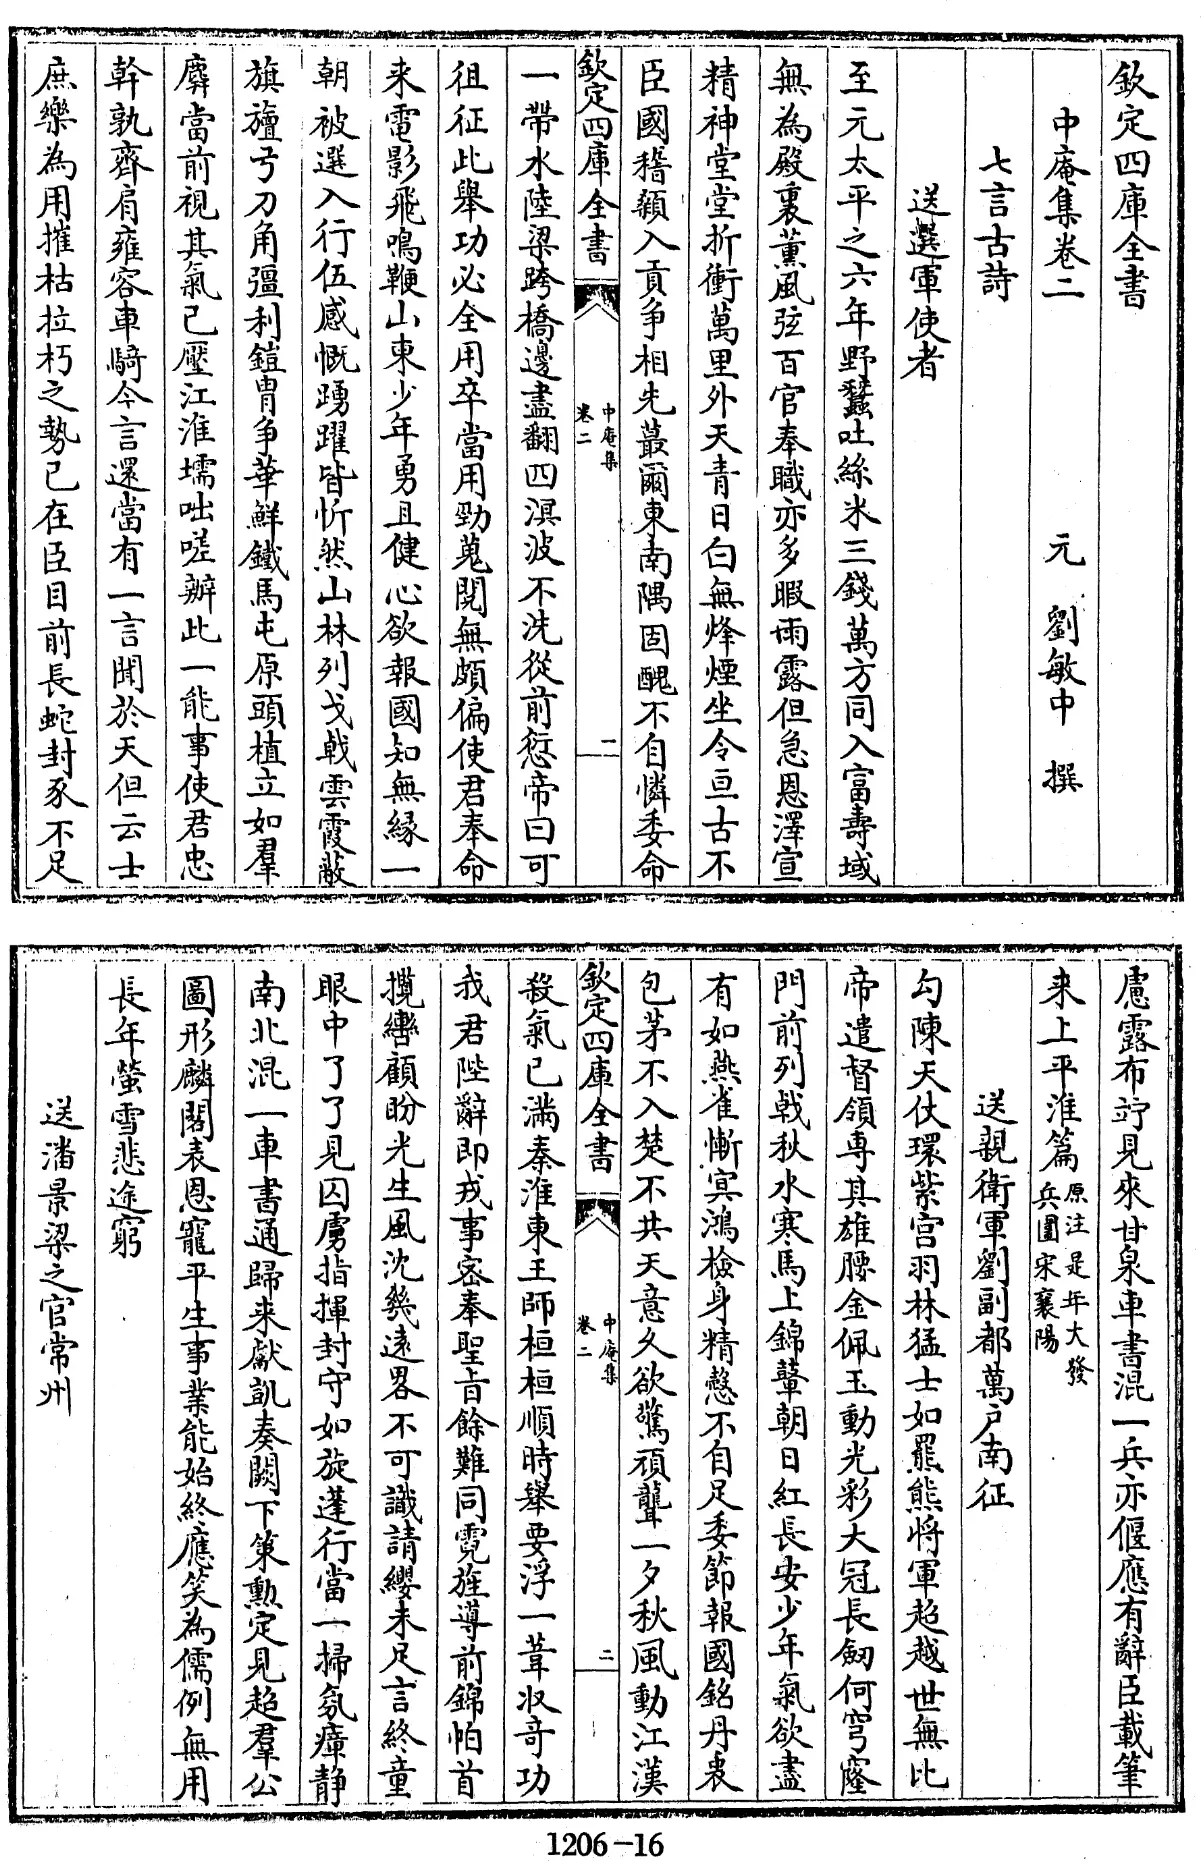 欽定四庫全書
中庵集卷二　元　劉敏中　撰
七言古詩
送選軍使者
至元太平之六年野蠶吐絲米三錢萬方同入富壽域
無為殿裏薰風弦百官奉職亦多暇雨露但急恩澤宣
精神堂堂折衝萬里外天青日白無烽煙坐令亘古不
臣國稽顙入貢爭相先蕞爾東南隅固醜不自憐委命
欽定四庫全書
中庵集
卷二
一
一帶水陸梁跨橋邊盡翻四溟波不洗從前愆帝曰可
徂征此舉功必全用卒當用勁蒐閱無頗偏使君奉命
来電影飛鳴鞭山東少年勇且健心欲報國知無縁一
朝被選入行伍感慨踴躍皆忻然山林列戈戟雲霞蔽
旗旜弓刀角彊利鎧胄爭華鮮鐵馬屯原頭植立如羣
麟當前視其氣已壓江淮壖咄嗟辦此一能事使君忠
幹孰齊肩雍容車騎今言還當有一言聞於天但云士
庶樂為用摧枯拉朽之勢已在臣目前長蛇封豕不足
慮露布竚見來甘泉車書混一兵亦偃應有辭臣載筆
来上平淮篇原注是年大發
兵圍宋襄陽
送親衛軍劉副都萬戸南征
勾陳天仗環紫宫羽林猛士如羆熊将軍超越世無比
帝遣督領専其雄腰金佩玉動光彩大冠長劒何穹窿
門前列戟秋水寒馬上錦韉朝日紅長安少年氣欲盡
有如燕雀慚冥鴻檢身精慤不自足委節報國銘丹衷
包茅不入楚不共天意久欲驚頑聾一夕秋風動江漢
欽定四庫全書
中庵集
卷二
二
殺氣已滿秦淮東王師桓桓順時舉要浮一葦収竒功
我君陛辭即戎事宻奉聖㫖餘難同霓旌導前錦帕首
攬轡顧盼光生風沈幾逺畧不可識請纓未足言終童
眼中了了見囚虜指揮封守如旋蓬行當一掃氛瘴静
南北混一車書通歸来獻凱奏闕下策勲定見超羣公
圖形麟閣表恩寵平生事業能始終應笑為儒例無用
長年螢雪悲途窮
送潘景梁之官常州
1206-16